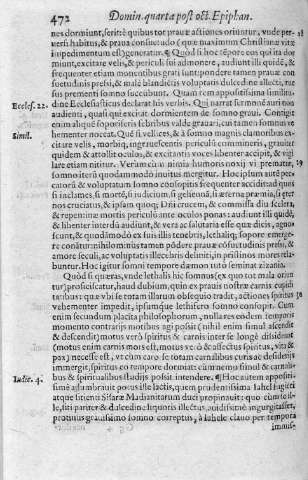 472 Domin. quarta post oct. Epiphan.
nes dormiunt, scrite quibus tot prauæ actiones oriuntur, vnde per-
uersi habitus, & praua consuetudo (quæ maximum Christianæ vitæ
impedimentum est) generatur. ¶ Quod si hoc tēpore eos qui ita dor
miunt, excitare velis, & periculi sui admonere, audiunt illi quidē, &
frequenter etiam momentibus grati sunt pondere tamen prauæ con
suetudinis pressi, & malè blandiētis voluptatis dulcedine allecti, rur
sus prementi somno succubunt. Quam rem appositissima similitu-
Eccles. 22. dine Ecclesiasticus declarat his verbis. Qui narrat sermonē auri non
audienti, quasi qui excitat dormientem de somno graui. Contigit
enim aliquē soporiferis febribus valde grauari, cui tamen somnus ve
Simil. hementer noceat. Quē si velles, & à somno magnis clamoribus ex-
citare velis, morbiq; ingrauescentis periculū commineris, grauiter
quidem & attollit oculos, & excitantis voces libenter accipit, & vigi
lare etiam nititur. Verùm cùm nimia humoris noxij vi prematur,
in somnum quodammodo inuitus mergitur. Hoc ipsum autē pec-
catorū & voluptatum somno consopitis frequenter accidit: ad quos
si inclames, si mortē, si iudicium, si gehennā, si æterna præmia, si æter
nos cruciatus, & ipsam quoq; Dñi crucem, & commissa diu scelera,
& repentinæ mortis periculū ante oculos ponas: audiunt illi quidē,
& libenter interdū audiunt, & vera ac salutaria esse quæ dicis, agnos
scunt, & quodāmodò ex suis illis tenebris, lethaliq; sopore emerge-
re conātur: nihilominus tamen pōdere prauæ cōsuetudinis pressi, &
amore seculi, ac voluptatis illecebris deliniti, in pristinos mores rela-
buntur. Hoc igitur somni tempore dæmon tutò seminat zizania.
Quòd si quæras, vnde lethalis hic somnus (ex quo tot mala oriun
tur) proficiscatur, haud dubium, quin ex prauis nostræ carnis cupidi
tatibus: quæ vbi se totam illarum obsequio tradit, actiones spiritus
vehementer impedit, ipsumque letifero somno consopit. Cum
enim secundum placita philosophorum, nulla res eodem temporis
momento contrarijs motibus agi possit (nihil enim simul ascendit
& descendit) motus verò spiritus & carnis inter se longè dissideant
(motus enim carnis mors est, motus verò & affectus spiritus, vita &
pax) necesse est, vt cum caro se totam carnalibus curis ac desiderijs
immergit, spiritus eo tempore dormiat: cùm nemo simul & carnali-
Iudic. 4. bus & spiritualibus studijs possit intendere. ¶ Hoc autem appositissi-
mè adumbrauit potus ille lactis, quem prudentissima Iahel siti
atque sitienti Sisaræ Madianitarum duci propinauit: quo cùm il-
le, siti pariter & dulcedine liquoris illectus, auidissimè ingurgitasset,
protinus grauissimo somno correptus, à Iahele clauo per tempora
immis-